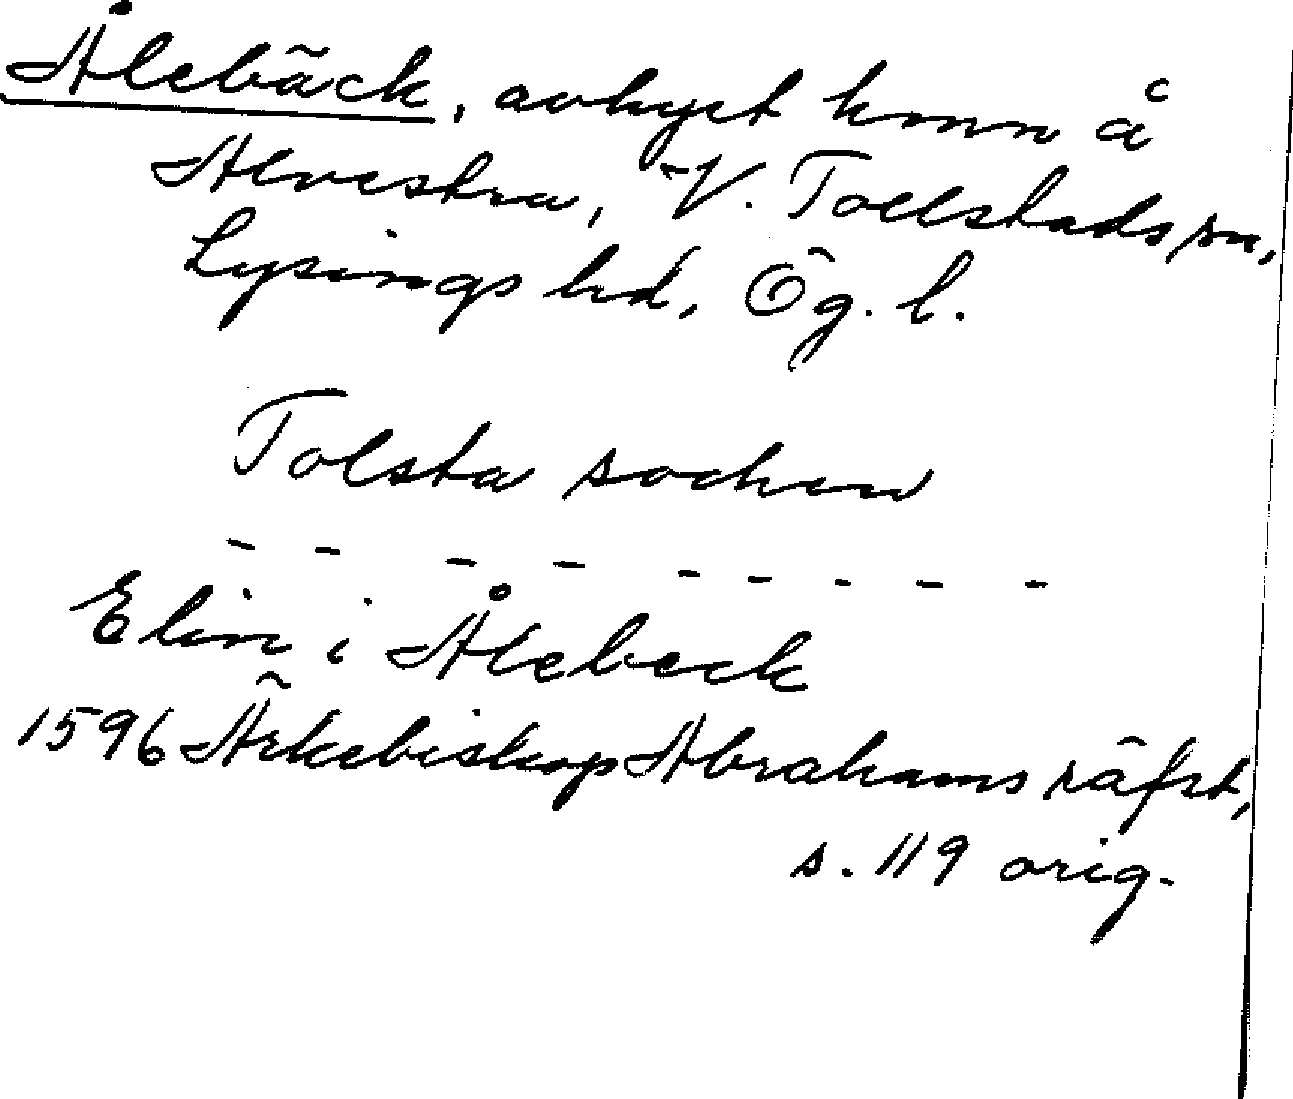 Ålebäck, avhyst hmn å
Alvastra, V. Tollstads sn,
Lysings hd, Ög. l.
Tolsta sochen
- - - - - - - - -
Elin i Ålebeck
1596 Ärkebiskop Abrahams räfst,
s. 119 orig.